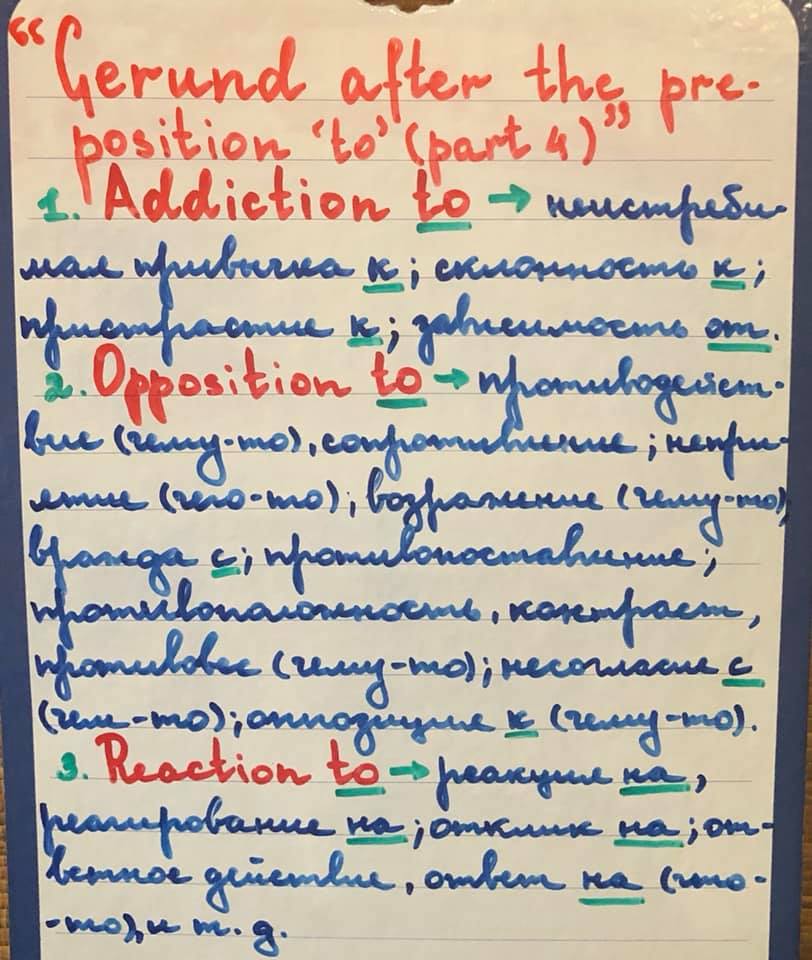 “Gerund after the pre-
position ‘to’ (part 4)”
1. Addiction to → неистреби-
мая привычка к; склонность к;
пристрастие к; зависимость от.
2. Opposition to → противодейст-
вие (чему-то), сопротивление; непри-
ятие (чего-то); возражение (чему-то),
вражда с; противопоставление;
противоположность, контраст,
противовес (чему-то); несогласие с
(чем-то); оппозиция к (чему-то).
3. Reaction to → реакция на,
реагирование на; отклик на; от-
ветное действие, ответ на (что-
-то), и т. д.